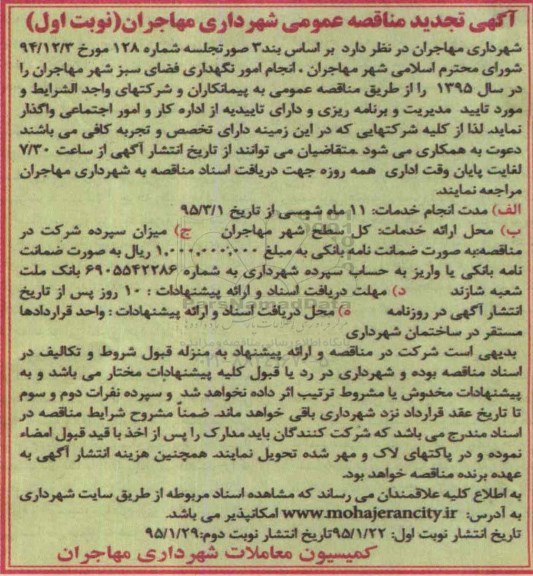 آگهی تجدید مناقصه عمومی شهرداری مهاجران(نوبت اول)
شهرداری مهاجران در نظر دارد بر اساس بند۳ صورتجلسه شماره ۱۲۸ مورخ ۹۴/۱۲/۳
شورای محترم اسلامی شهر مهاجران ، انجام امور نگهداری فضای سبز شهر مهاجران را
در سال ۱۳۹۵ را از طریق مناقصه عمومی به پیمانکاران و شرکتهای واجد الشرایط و
مورد تایید مدیریت و برنامه ریزی و دارای تاییدیه از اداره کار و امور اجتماعی واگذار
نماید. لذا از کلیه شرکتهایی که در این زمینه دارای تخصص و تجربه کافی می باشند
دعوت به همکاری می شود .متقاضیان می توانند از تاریخ انتشار آگهی از ساعت ۷/۳۰
لغایت پایان وقت اداری همه روزه جهت دریافت اسناد مناقصه به شهرداری مهاجران
مراجعه نمایند.
الف) مدت انجام خدمات: ۱۱ ماه شمسی از تاریخ ۹۵/۳/۱
ب) محل ارائه خدمات: کل سطح شهر مهاجران ج) میزان سپرده شرکت در
مناقصه:به صورت ضمانت نامه بانکی به مبلغ ۱,۰۰۰,۰۰۰,۰۰۰ ریال به صورت ضمانت
نامه بانکی یا واریز به حساب سپرده شهرداری به شماره ۶۹۰۵۵۴۲۲۸۶ بانک ملت
شعبه شازند د) مهلت دریافت اسناد و ارائه پیشنهادات : ۱۰ روز پس از تاریخ
انتشار آگهی در روزنامه ه) محل دریافت اسناد و ارائه پیشنهادات : واحد قراردادها
مستقر در ساختمان شهرداری
بدیهی است شرکت در مناقصه و ارائه پیشنهاد به منزله قبول شروط و تکالیف در
اسناد مناقصه بوده و شهرداری در رد یا قبول کلیه پیشنهادات مختار می باشد و به
پیشنهادات مخدوش یا مشروط ترتیب اثر داده نخواهد شد و سپرده نفرات دوم و سوم
تا تاریخ عقد قرارداد نزد شهرداری باقی خواهد ماند. ضمناً مشروح شرایط مناقصه در
اسناد مندرج می باشد که شرکت کنندگان باید مدارک را پس از اخذ با قید قبول امضاء
نموده و در پاکتهای لاک و مهر شده تحویل نمایند. همچنین هزینه انتشار آگهی به
عهده برنده مناقصه خواهد بود.
به اطلاع کلیه علاقمندان می رساند که مشاهده اسناد مربوطه از طریق سایت شهرداری
به آدرس: www.mohajerancity.ir امکانپذیر می باشد.
تاریخ انتشار نوبت اول: ۹۵/۱/۲۲تاریخ انتشار نوبت دوم:۹۵/۱/۲۹
کمیسیون معاملات شهرداری مهاجران